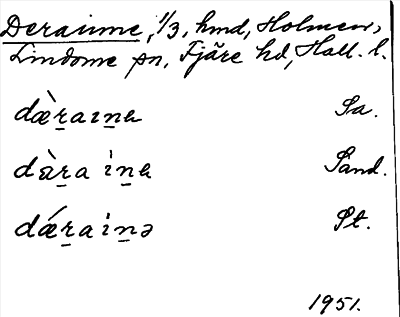 Derainne, 1/3, hmd, Holmen,
Lindome sn, Fjäre hd, Hall. l.
dæ̀ṟaıṉa Sa.
dàṟa ìṉa Sand.
dǽṟaiṉə St.
1951.